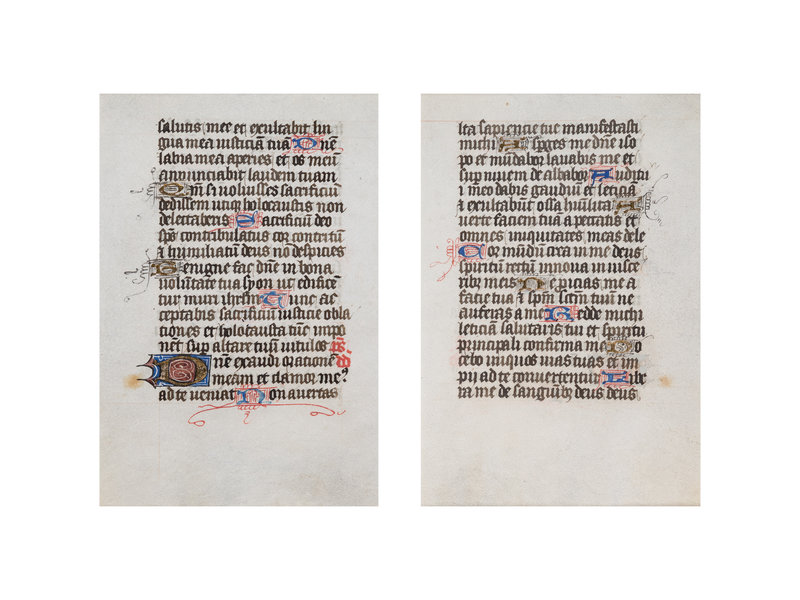 salutis mee et exultabit lin
gua mea iusticiã tuã Dñe
labia mea aperies et os meũ
annunciabit laudem tuam
Qm̃ si voluisses sacrificiũ
dedissem utiqz holocaustis non
delectaberis Sacrificiũ deo
sp̃s contribulatus cor contritũ
z humiliatũ deus nõ despicies
Benigne fac dñe in bona
volũtate tua syon ut edificẽ
tur muri ihrlm̃ Tunc ac
ceptabis sacrificiũ iusticie obla
tiones et holocausta tũc impo
nẽt sup altare tuũ vitulos
Dñe exaudi orationẽ
meam et clamor meꝰ
ad te veniat Non avertas
lta sapiencie tue manifestasti
michi Asperges me dñe iso
po et mũdabor lavabis me et
sup nivem dealbabor Auditu
i meo dabis gaudiũ et leticiã
z exultabũt ossa hũiliata A
verte faciem tuã a peccatis et
omnes iniquitates meas dele
Cor mũdũ crea in me deus
spiritũ rectũ innova in visce
ribz meis Ne proicias me a
facie tua z spm̃ sctm̃ tuũ ne
auferas a me Redde michi
leticiã salutaris tui et spiritu
principali confirma me Do
cebo iniquos vias tuas et im
pij ad te convertentur Libe
ra me de sanguĩbz deus deus